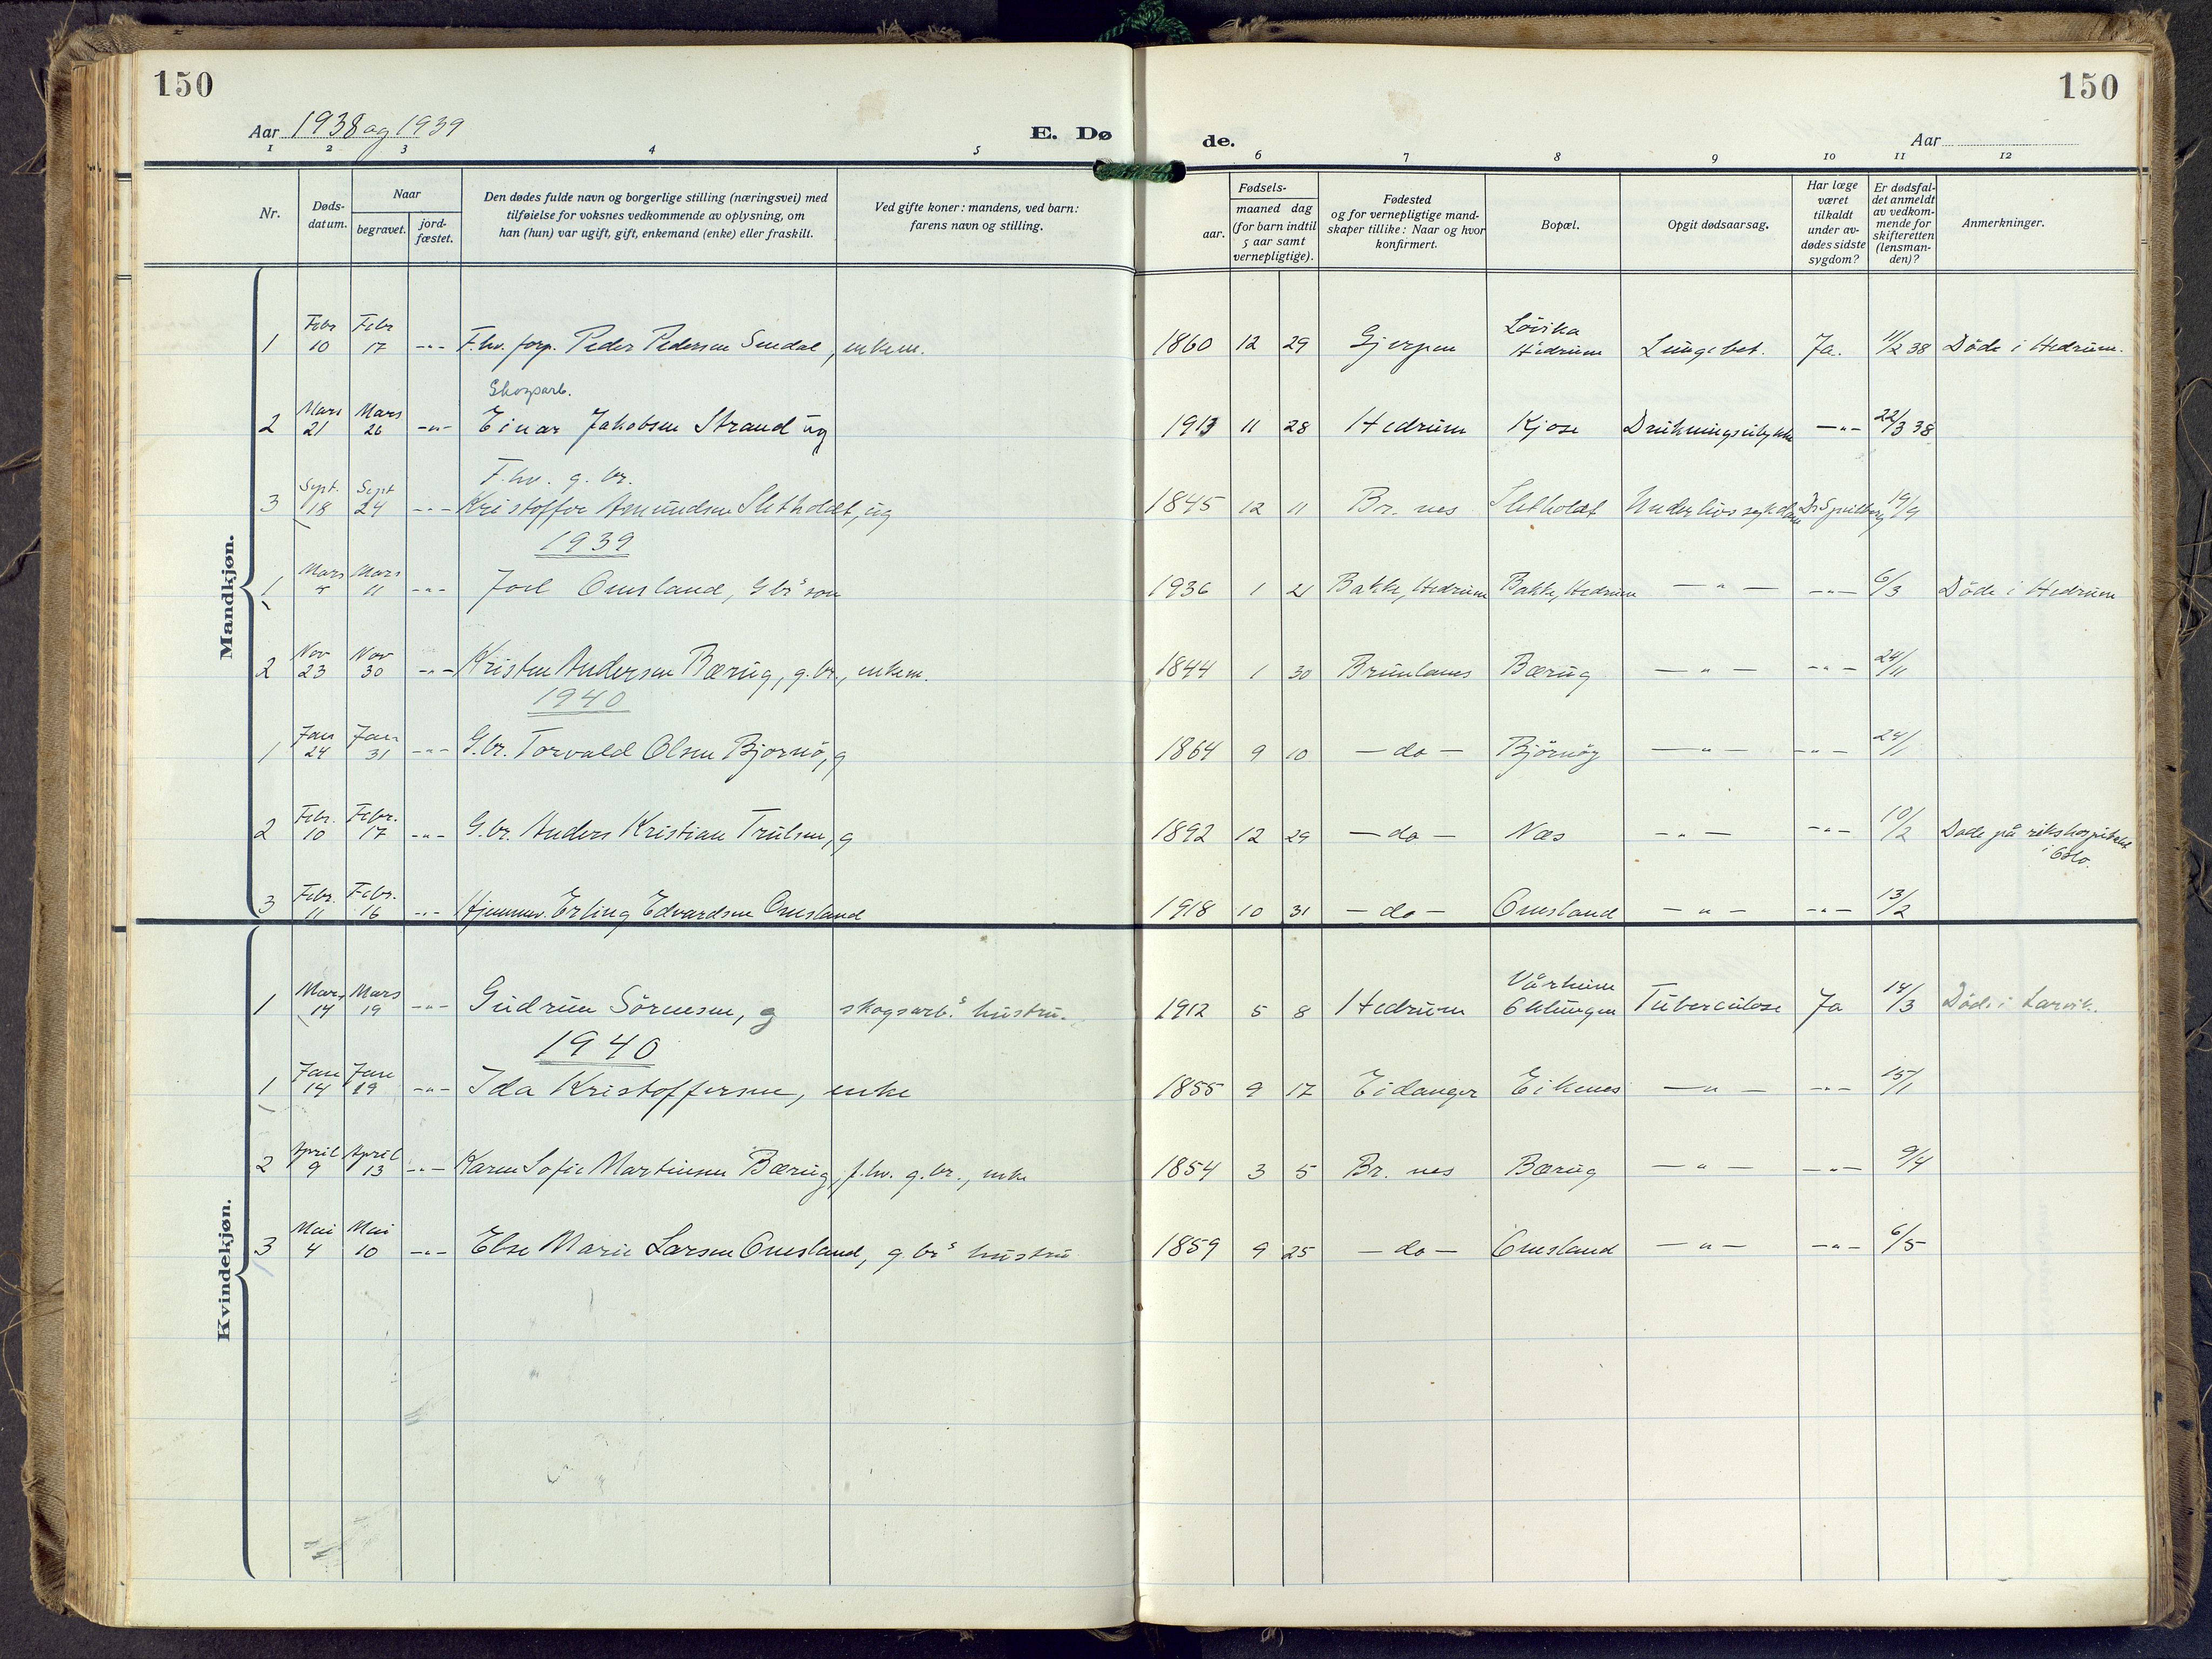 150
150
Aar 1938 og 1939
E. Dø
de.
Aar
1 2 3 4 5 6 7 8 9 10 11 12
Nr.
Døds-
datum.
Naar
begravet.
jord-
fæstet.
Den dødes fulde navn og borgerlige stilling (næringsvei) med
tilføielse for voksnes vedkommende av oplysning, om
han (hun) var ugift, gift, enkemand (enke) eller fraskilt.
Ved gifte koner: mandens, ved barn:
farens navn og stilling.
Fødsels-
aar.
maaned dag
(for barn indtil
5 aar samt
vernepligtige).
Fødested
og for vernepligtige mand-
skaper tillike: Naar og hvor
konfirmert.
Bopæl.
Opgit dødsaarsag.
Har læge
været
tilkaldt
under av-
dødes sidste
sygdom?
Er dødsfal-
det anmeldt
av vedkom-
mende for
skifteretten
(lensman-
den)?
Anmerkninger.
Mandkjøn.
1 Febr 10 Febr 17 -"- F.hv. forp. Peder Pedersen Sendal, enkem. 1860 12 29 Gjerpen Løvika Hedrum Lungebet. Ja. 11/2 38 Døde i Hedrum.
Skogsarb.
2 Mars 21 Mars 26 -"- Einar Jakobsen Strand ug 1913 11 28 Hedrum Kjose Drukningsulykke -"- 22/3 38
F.hv. g.br.
3 Sept. 18 Sept 24 -"- Kristoffer Amundsen Sletholdt, ug 1845 12 11 Br. nes Sletholdt Underlivssykdom 19/9
1939
1 Mars 5 Mars 11 -"- Joel Omsland, Gbrs son 1936 1 21 Bakke, Hedrum Bakke, Hedrum -"- -"- 6/3 Døde i Hedrum
2 Nov 23 Nov 30 -"- Kristen Andersen Bærug, g.br., enkem. 1844 1 30 Brunlanes Bærug -"- -"- 24/11
1940
1 Jan 24 Jan 31 -"- G.br. Torvald Olsen Bjornø, g 1864 9 10 - do - Bjørnøy -"- -"- 24/1
2 Febr. 10 Febr. 17 -"- G.br. Anders Kristian Trulsen, g 1892 12 29 - do - Næs -"- -"- 10/2 Døde på rikshospitalet
i Oslo.
3 Febr. 11 Febr. 16 -"- Hjemmev. Erling Edvardsen Omsland 1918 10 31 - do - Omsland -"- -"- 13/2
Kvindekjøn.
1 Mars 14 Mars 19 -"- Gudrun Sörensen, g skogsarb.s hustru. 1912 5 8 Hedrum Vårheim Oklungen Tuberculose Ja 14/3 Døde i Larvik.
1940
1 Jan 14 Jan 19 -"- Ida Kristoffersen, enke 1855 9 17 Eidanger Eikenes -"- -"- 15/1
2 April 9 April 13 -"- Karen Sofie Martinsen Bærug, f.hv. g.br., enke 1854 3 5 Br. nes Bærug -"- -"- 9/4
3 Mai 4 Mai 10 -"- Else Marie Larsen Omsland, g.brs hustru 1859 9 25 - do - Omsland -"- -"- 6/5